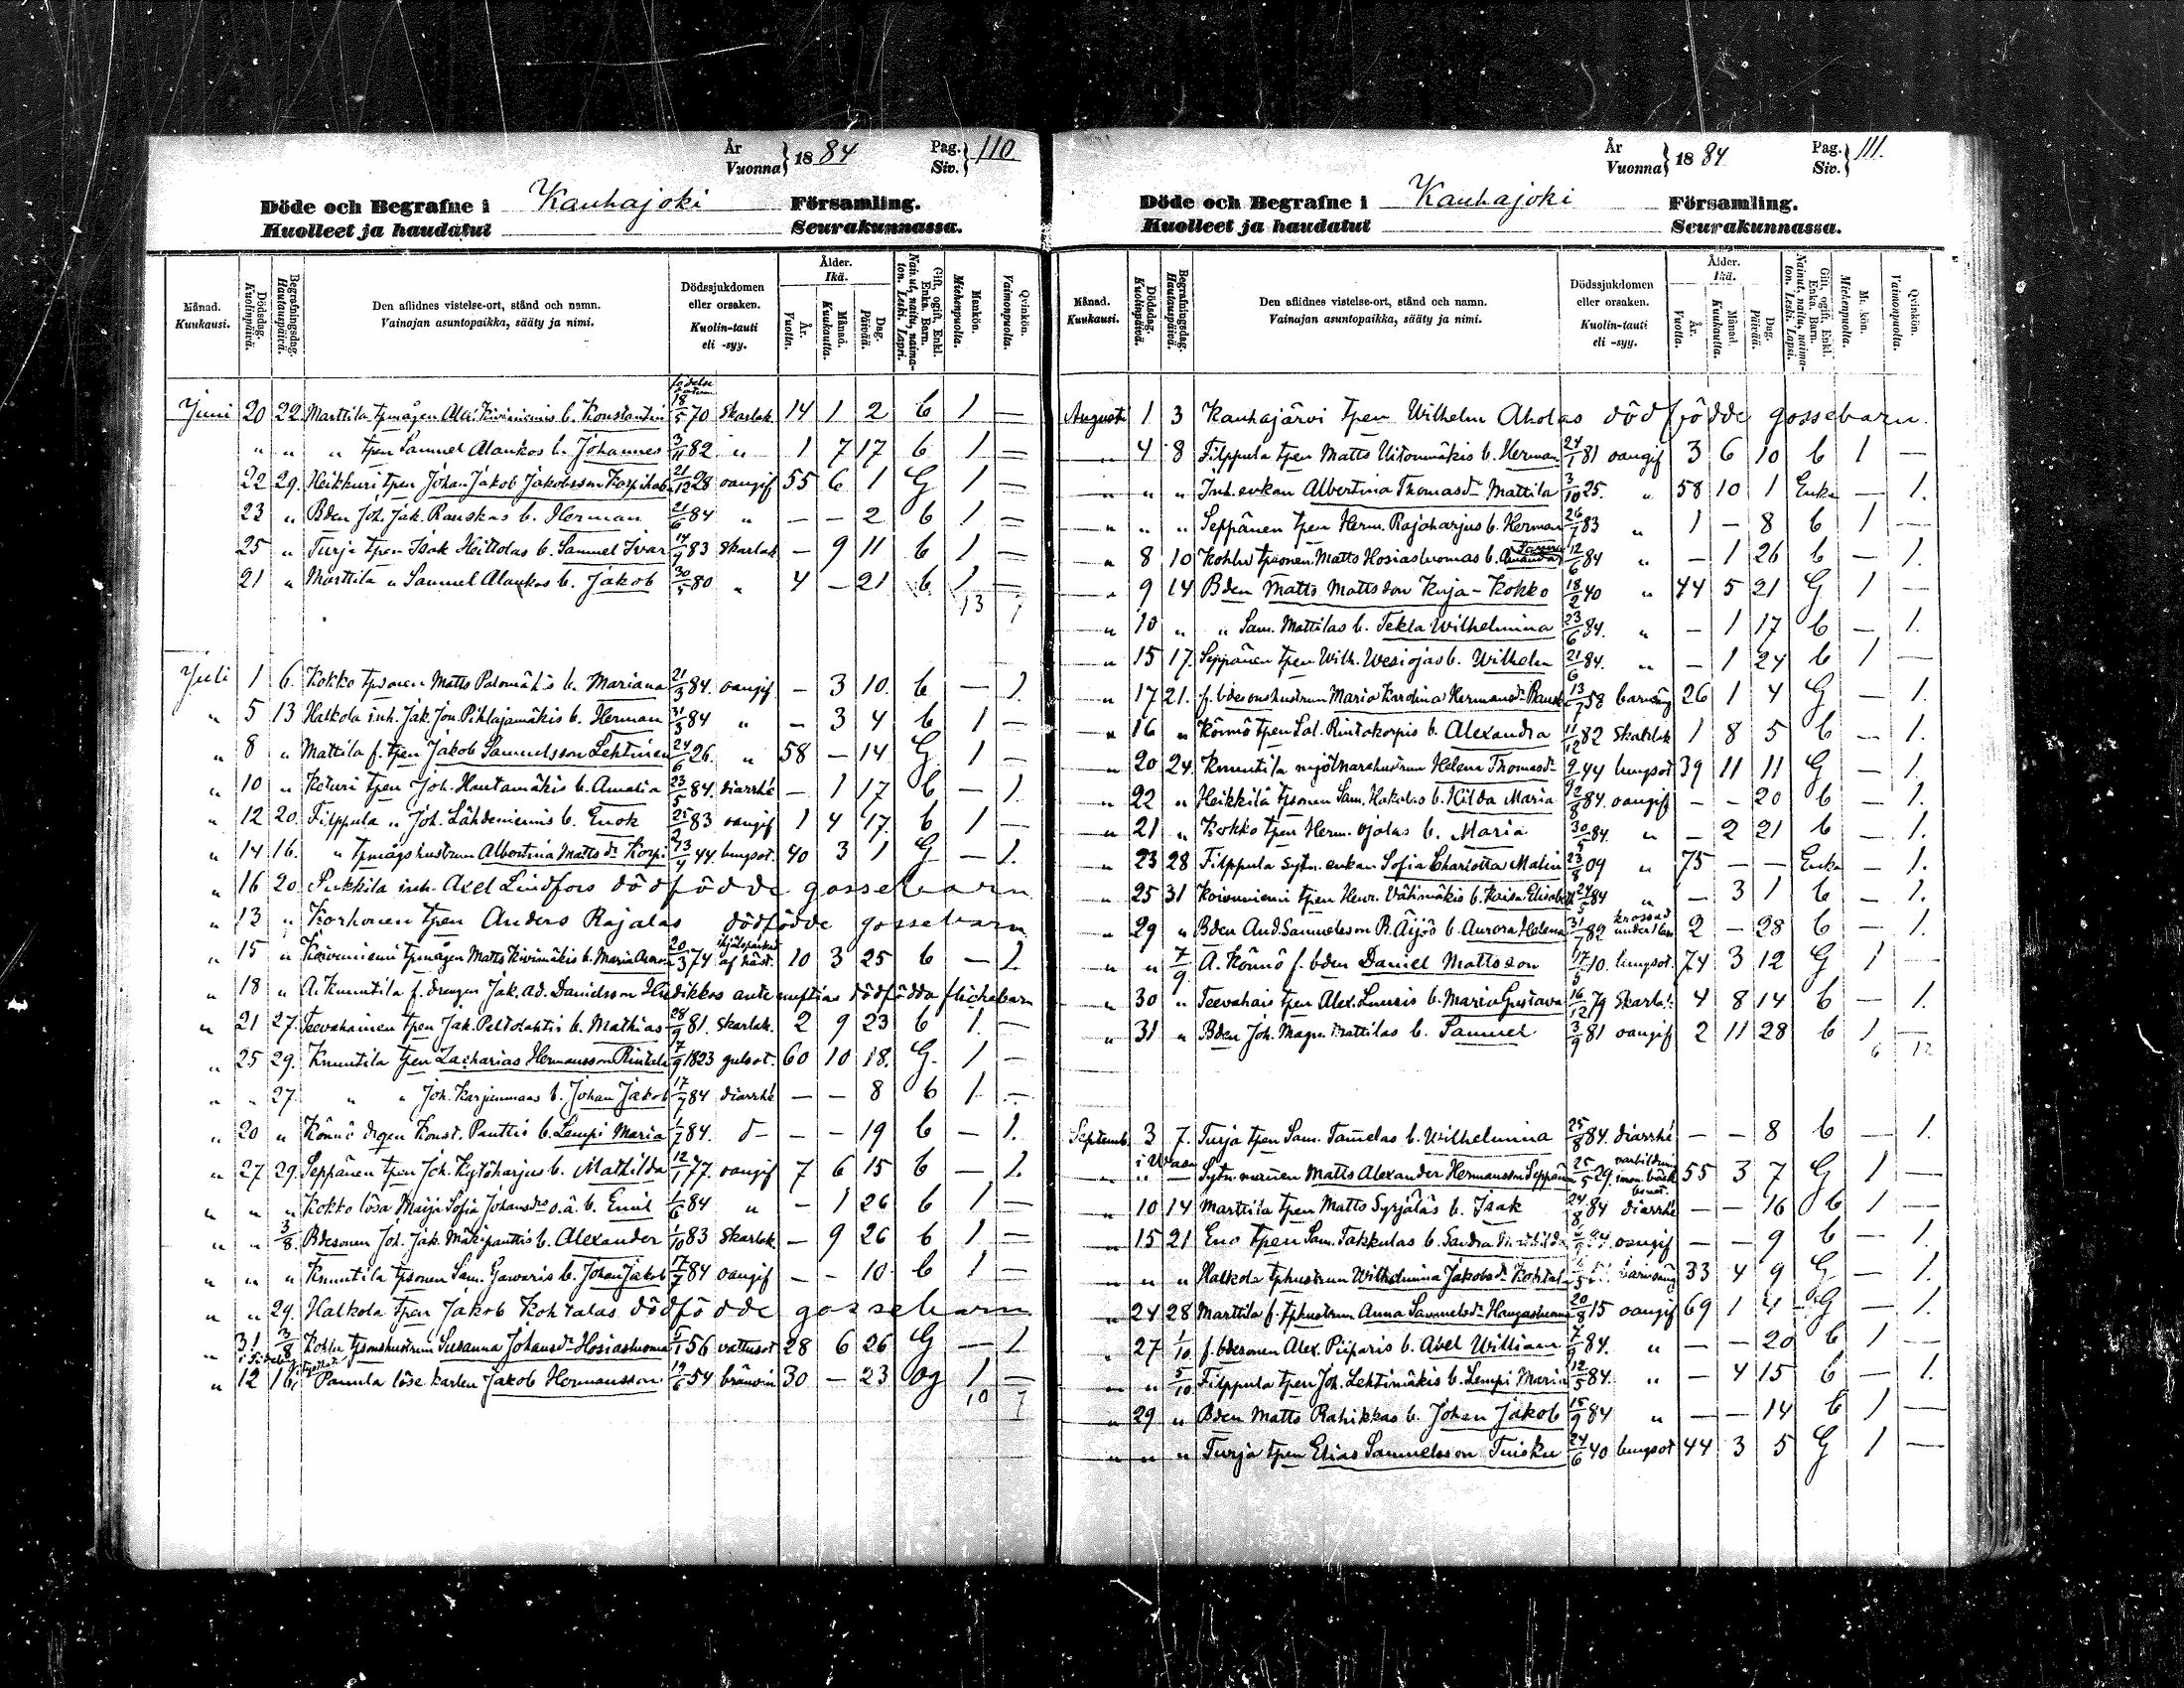 År
Vuonna } 18 84
Pag.
Siv. } 110
Döde och Begrafne i Kauhajoki Församling.
Kuolleet ja haudatut Seurakunnassa.
Månad. Kuukausi.
Dödsdag. Kuolinpäivä.
Begrafningsdag. Hautauspäivä.
Den aflidnes vistelse-ort, stånd och namn.
Vainajan asuntopaikka, sääty ja nimi.
Dödssjukdomen eller orsaken.
Kuolin-tauti eli -syy.
Ålder. Ikä.
År. Vuotta.
Månad. Kuukautta.
Dag. Päivää.
Gift, ogift, Enkl. Enka. Barn.
Nainut, naitu, naimaton. Leski. Lapsi.
Mankön. Miehenpuolta.
Qvinkön. Vaimonpuolta.
Juni 20 22 Marttila tpmågen Kiviniemis b. Konstantin 18/5 70 skarlak. 14 1 2 b 1 —
" " " tpen Samuel Alaukos b. Johannes 3/11 82 " 1 7 17 b 1 —
22 29. Heikkuri tpen Johan Jakob Jakobsson 21/12 28 oangif 55 6 1 G 1 —
23 " Bden Joh. Jak. Rauskas b. Herman 21/6 84 " — — 2 b 1 —
25 " Turja tpen Isak Heittolas b. Samuel Ivar 14/9 83 skarlak — 9 11 b 1 —
21 " Marttila " Samuel Alaukos b. Jakob 30/5 80 " 4 — 21 b 1 —
13 7
Juli 1 6. Kokko tpsonen Matts Palomäkis b. Mariana 21/3 84. oangif — 3 10. b — 1.
" 5 13 Halkola inh. Jak. Jon. Pihlajamäkis b. Herman 31/3 84 " — 3 4 b 1 —
" 8 " Mattila f. tpen Jakob Samuelsson Lehtinen 24/6 26. " 58 — 14 G 1 —
" 10 " Keturi tpen Joh. Hautamäkis b. Amalia 23/5 84. diarrhé — 1 17 b — 1.
" 12 20. Filppula " Joh. Lähdeniemis b. Enok 25/2 83 oangif 1 4 17. b 1 —
" 14 16. " tpmågshustrun Albertina Mattsdr Korpi 13/4 44. lungsot. 40 3 1 G — 1.
" 16 20. Pukkila inh. Axel Lindfors dödfödde gossebarn
" 13 " Korhonen tpen Anders Rajalas dödfödde gossebarn
" 15 " Koivuniemi tpmågen Matts Kivimäkis b. Maria 20/3 74 ihjälsparkad af häst. 10 3 25 b — 1.
" 18 " A. Knuutila f. drengen Jak. Ad. Danielsson ante nuptias dödfödda flickebarn
" 21 27. Teevahainen tpen Jak. Peltolahtis b. Mathias 28/9 81. skarlak. 2 9 23 b 1. —
" 25 29. Knuutila tpen Zacharias Hermansson Rintala 7/9 1823 gulsot. 60 10 18. G. 1 —
" " 27. " " Joh. Karjanmaas b. Johan Jakob 17/7 84 diarrhé — — 8 b 1. —
" 20 " Könnö drgen Konst. Panttis b. Lempi Maria 1/7 84. d— — — 19 b — 1.
" 27 29. Seppänen tpen Joh. Kytöharjus b. Mathilda 12/1 77. oangif 7 6 15 b — 1.
" " " Kokko lösa Maija Sofia Johansdrs o.ä. b. Emil 1/6 84 " — 1 26 b 1 —
" " 3/8. Bdesonen Joh. Jak. Mäkipanttis b. Alexander 1/10 83 skarlak — 9 26 b 1 —
" " " Knuutila tpsonen Sam. b. Johan Jakob 17/7 84 oangif — — 10. b 1 —
" " 29. Halkola tpen Jakob Kohtalas dödfödde gossebarn
" 31. 3/8 Kohlu tpsonshustrun Susanna Johansdr Hosiasluoma 5/1 56 vattusot 28 6 26 G — 1.
" 12 16. Panula löse karlen Jakob Hermansson 19/6 54 brännvin 30 — 23 og 1 —
10 7
År
Vuonna } 18 84
Pag.
Siv. } 111.
Döde och Begrafne i Kauhajoki Församling.
Kuolleet ja haudatut Seurakunnassa.
Månad. Kuukausi.
Dödsdag. Kuolinpäivä.
Begrafningsdag. Hautauspäivä.
Den aflidnes vistelse-ort, stånd och namn.
Vainajan asuntopaikka, sääty ja nimi.
Dödssjukdomen eller orsaken.
Kuolin-tauti eli -syy.
Ålder. Ikä.
År. Vuotta.
Månad. Kuukautta.
Dag. Päivää.
Gift, ogift, Enkl. Enka. Barn.
Nainut, naitu, naimaton. Leski. Lapsi.
Miehenpuolta.
Qvinkön. Vaimonpuolta.
Augusti 1 3 Kauhajärvi tpen Wilhelm Aholas dödfödde gossebarn.
" 4 8 Filppula tpen Matts b. Herman 24/1 81 oangif 3 6 10 b 1 —
" " " Inh. enkan Albertina Thomasdr Mattila 3/10 25. " 58 10 1 Enka — 1.
" " " Seppänen tpen Herm. Rajaharjus b. Herman 26/7 83 " 1 — 8 b 1 —
" 8 10 Kohlu tpsonen Matts Hosiasluomas b. 12/6 84 " — 1 26 b — 1.
" 9 14 Bden Matts Mattsson Kuja-Kokko 18/2 40 " 44 5 21 G 1 —
" 10 " " Sam. Mattilas b. Tekla Wilhelmina 23/6 84. " — 1 17 b — 1.
" 15 17. Seppänen tpen Wilh. Wesiojas b. Wilhelm 21/6 84. " — 1 24 b 1 —
" 17 21. f. bdesonshustrun Maria Karolina Hermansdr 13/7 58 barnsäng 26 1 4 G — 1.
" 16 " Könnö tpen Sal. Rintakorpis b. Alexandra 11/12 82 skarlak 1 8 5 b — 1.
" 20 24. Knuutila mjölnarehustrun Helena Thomasdr 9/9 44 lungsot 39 11 11 G — 1.
" 22 " Heikkilä tpsonen Sam. Hakalas b. Hilda Maria 2/8 84. oangif — — 20 b — 1.
" 21 " Kokko tpen Herm. Ojalas b. Maria 30/5 84. " — 2 21 b — 1.
" 23 28 Filppula sytn. enkan Sofia Charlotta Malin 23/8 09 " 75 — — Enka — 1.
" 25 31 Koivuniemi tpen Henr. Vähimäkis b. Kaisa Elisabeth 24/5 84 " — 3 1 b — 1.
" 29 " Bden And. Samuelsson R. Äijös b. Aurora Helena 31/7 82 krossad under lass 2 — 28 b — 1.
" " 7/9 A. Könnö f. bden Daniel Mattsson 17/5 10. lungsot. 74 3 12 G 1 —
" 30 " Teevahais tpen Alex. Luusis b. Maria Gustava 16/12 79 skarla. 4 8 14 b — 1.
" 31 " Bden Joh. Magn. Mattilas b. Samuel 3/9 81 oangif 2 11 28 b 1 —
6 12
Septemb. 3 7. Turja tpen Sam. Tamelas b. Wilhelmina 25/8 84. diarrhé — — 8 b — 1.
" i Wasa — Sytn. mannen Matts Alexander Hermansson Seppänen 25/5 29. 55 3 7 G 1 —
" 10 14 Marttila tpen Matts Syrjäläs b. Isak 24/8 84 diarrhé — — 16 b 1 —
" 15 21 Eno tpen Sam. Takkulas b. Sandra oangif — — 9 b — 1.
" " " Halkola tphustrun Wilhelmina Jakobsdr barnsäng 33 4 9 G — 1.
" 24 28 Marttila f. tphustrun Anna Samuelsdr Hangasluoma 20/8 15 oangif 69 1 4 G — 1.
" 27 1/10 f. bdesonen Alex. Piiparis b. Abel William 7/9 84. " — — 20 b 1 —
" " 5/10 Filppula tpen Joh. Lehtimäkis b. Lempi Maria 12/5 84. " — 4 15 b — 1.
" 29 " Bden Matts Rahikkas b. Johan Jakob 15/9 84 " — — 14 b 1 —
" " " Turja tpen Elias Samuelsson Tuisku 24/6 40 lungsot 44 3 5 G 1 —